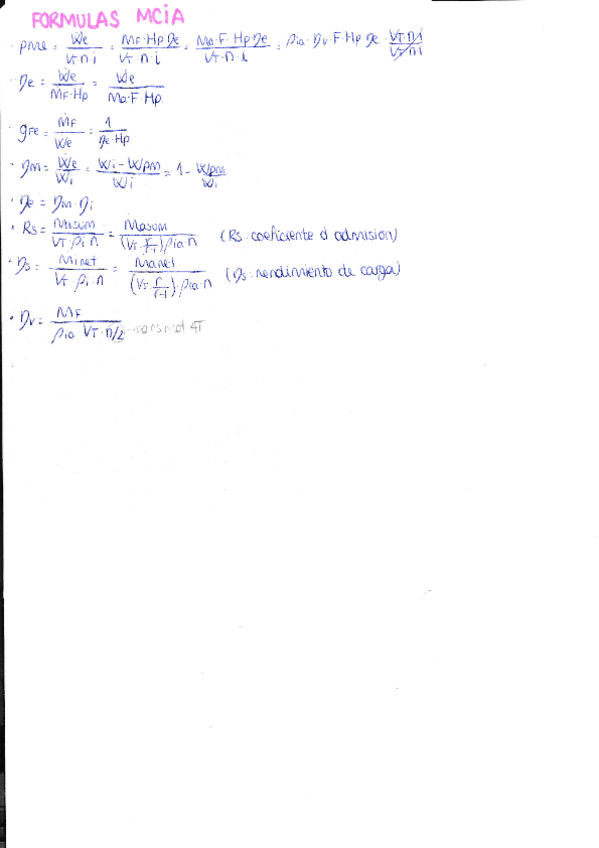 FORMULAS MCiA
· pme = Ẇe / VT·n·i = ṀF·Hp·ηe / VT·n·i = Ṁa·F·Hp·ηe / VT·n·i = ρia·ηv·F·Hp·ηe · VT·n·i / VT·n·i
· ηe = Ẇe / ṀF·Hp = Ẇe / Ṁa·F·Hp
· gFe = ṀF / Ẇe = 1 / ηe·Hp
· ηm = Ẇe / Ẇi = Ẇi - Ẇpm / Ẇi = 1 - Ẇpm / Ẇi
· ηe = ηm·ηi
· Rs = Mtisum / VT ρi n = Masum / (VT r/r-1) ρia·n (Rs: coeficiente d admision)
· ηs = Minet / VT ρi·n = Manet / (VT · r/r-1)·ρia·n (ηs: rendimiento de carga)
· ηv = ṀF / ρia VT·n/2 4T